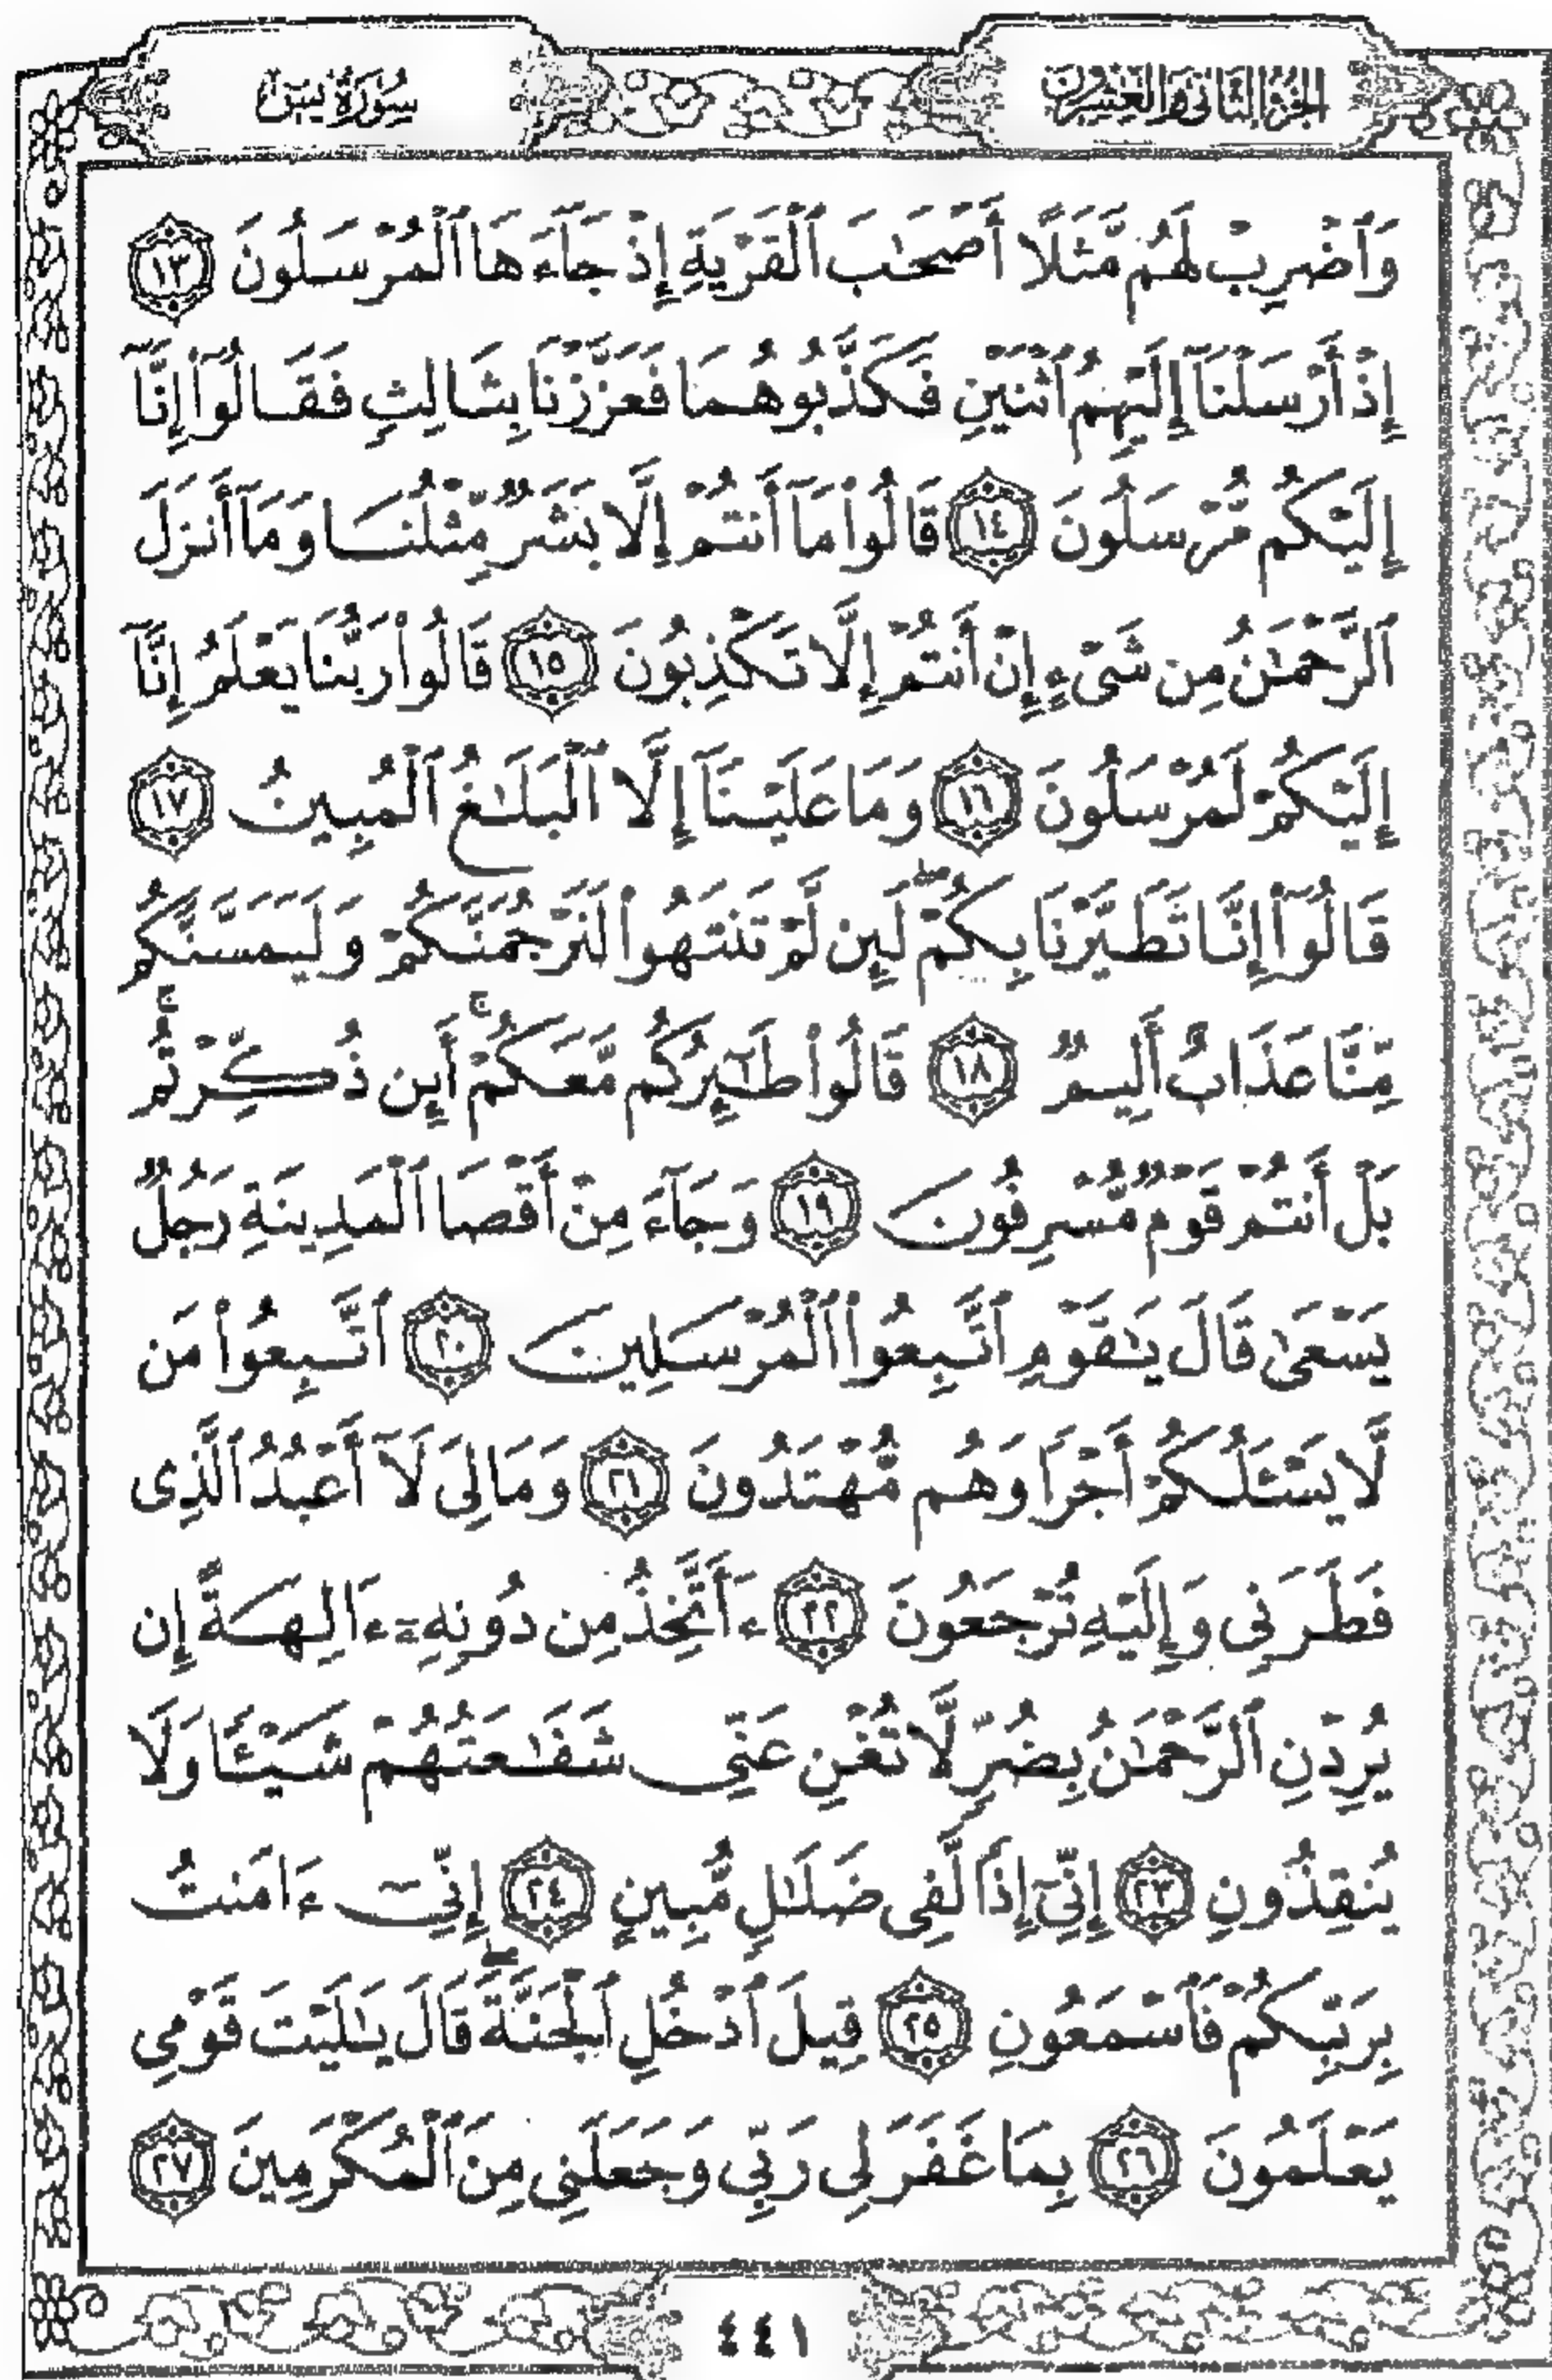 الجزء الثاني والعشرون
سُورَةُ يسٓ
وَٱضۡرِبۡ لَهُم مَّثَلًا أَصۡحَٰبَ ٱلۡقَرۡيَةِ إِذۡ جَآءَهَا ٱلۡمُرۡسَلُونَ ١٣
إِذۡ أَرۡسَلۡنَآ إِلَيۡهِمُ ٱثۡنَيۡنِ فَكَذَّبُوهُمَا فَعَزَّزۡنَا بِثَالِثٖ فَقَالُوٓاْ إِنَّآ
إِلَيۡكُم مُّرۡسَلُونَ ١٤ قَالُواْ مَآ أَنتُمۡ إِلَّا بَشَرٞ مِّثۡلُنَا وَمَآ أَنزَلَ
ٱلرَّحۡمَٰنُ مِن شَيۡءٍ إِنۡ أَنتُمۡ إِلَّا تَكۡذِبُونَ ١٥ قَالُواْ رَبُّنَا يَعۡلَمُ إِنَّآ
إِلَيۡكُمۡ لَمُرۡسَلُونَ ١٦ وَمَا عَلَيۡنَآ إِلَّا ٱلۡبَلَٰغُ ٱلۡمُبِينُ ١٧
قَالُوٓاْ إِنَّا تَطَيَّرۡنَا بِكُمۡۖ لَئِن لَّمۡ تَنتَهُواْ لَنَرۡجُمَنَّكُمۡ وَلَيَمَسَّنَّكُم
مِّنَّا عَذَابٌ أَلِيمٞ ١٨ قَالُواْ طَٰٓئِرُكُم مَّعَكُمۡ أَئِن ذُكِّرۡتُمۚ
بَلۡ أَنتُمۡ قَوۡمٞ مُّسۡرِفُونَ ١٩ وَجَآءَ مِنۡ أَقۡصَا ٱلۡمَدِينَةِ رَجُلٞ
يَسۡعَىٰ قَالَ يَٰقَوۡمِ ٱتَّبِعُواْ ٱلۡمُرۡسَلِينَ ٢٠ ٱتَّبِعُواْ مَن
لَّا يَسۡـَٔلُكُمۡ أَجۡرٗا وَهُم مُّهۡتَدُونَ ٢١ وَمَالِيَ لَآ أَعۡبُدُ ٱلَّذِي
فَطَرَنِي وَإِلَيۡهِ تُرۡجَعُونَ ٢٢ ءَأَتَّخِذُ مِن دُونِهِۦٓ ءَالِهَةً إِن
يُرِدۡنِ ٱلرَّحۡمَٰنُ بِضُرّٖ لَّا تُغۡنِ عَنِّي شَفَٰعَتُهُمۡ شَيۡـٔٗا وَلَا
يُنقِذُونِ ٢٣ إِنِّيٓ إِذٗا لَّفِي ضَلَٰلٖ مُّبِينٍ ٢٤ إِنِّيٓ ءَامَنتُ
بِرَبِّكُمۡ فَٱسۡمَعُونِ ٢٥ قِيلَ ٱدۡخُلِ ٱلۡجَنَّةَۖ قَالَ يَٰلَيۡتَ قَوۡمِي
يَعۡلَمُونَ ٢٦ بِمَا غَفَرَ لِي رَبِّي وَجَعَلَنِي مِنَ ٱلۡمُكۡرَمِينَ ٢٧
٤٤١